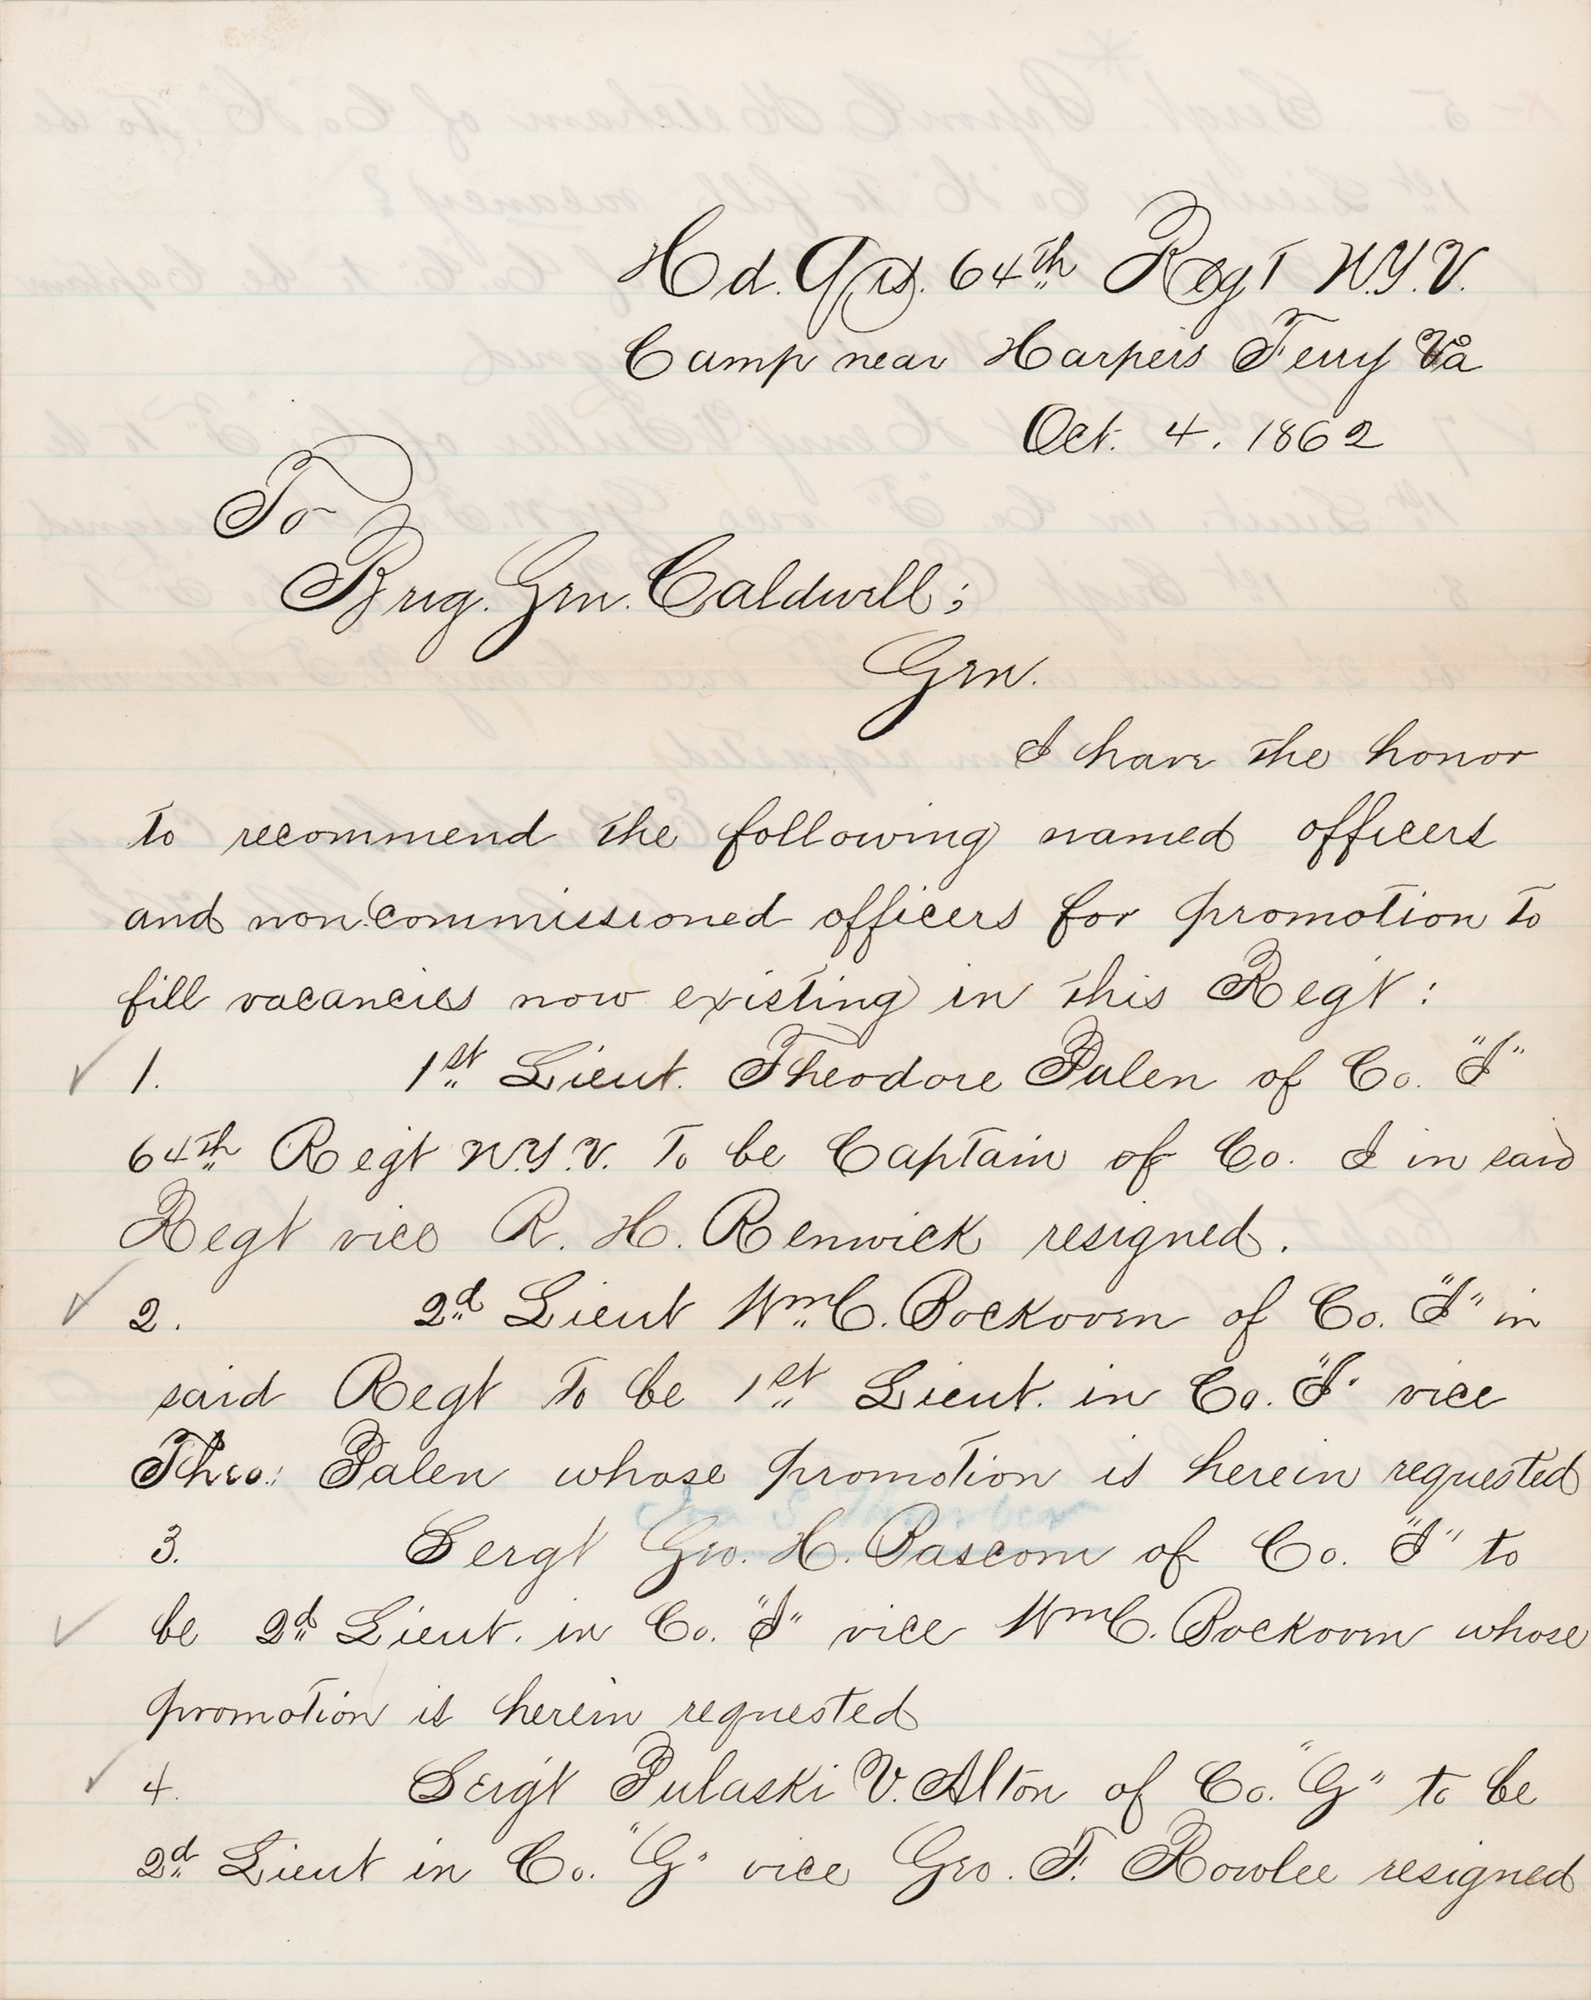 Hd. Qrs. 64th Regt N.Y.V.
Camp near Harpers Ferry Va
Oct. 4. 1862
To
Brig. Gen. Caldwell;
Gen.
I have the honor
to recommend the following named officers
and non commissioned officers for promotion to
fill vacancies now existing in this Regt:
1. 1st Lieut. Theodore Palen of Co. "I"
64th Regt N.Y.V. to be Captain of Co. I in said
Regt vice R. H. Renwick resigned.
2. 2d Lieut Wm C. Bockoven of Co. "I" in
said Regt to be 1st Lieut. in Co. "I" vice
Theo: Palen whose promotion is herein requested
3. Sergt Geo. H. Bascom of Co. "I" to
be 2d Lieut. in Co. "I" vice Wm C. Bockoven whose
promotion is herein requested
4. Sergt Pulaski V. Alton of Co. "G" to be
2d Lieut in Co. "G" vice Geo. F. Rowlee resigned